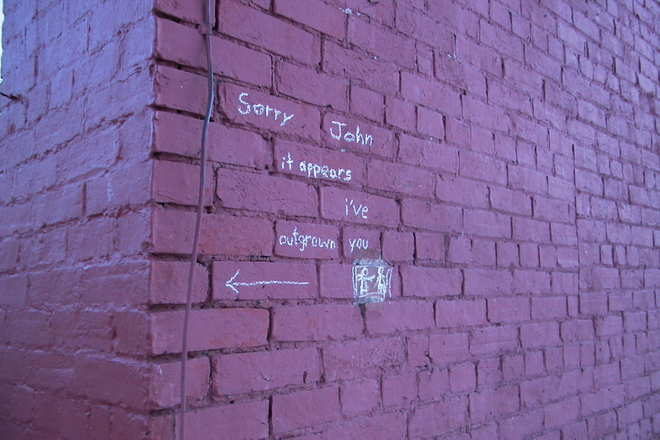 Sorry John
it appears
i've
outgrown you